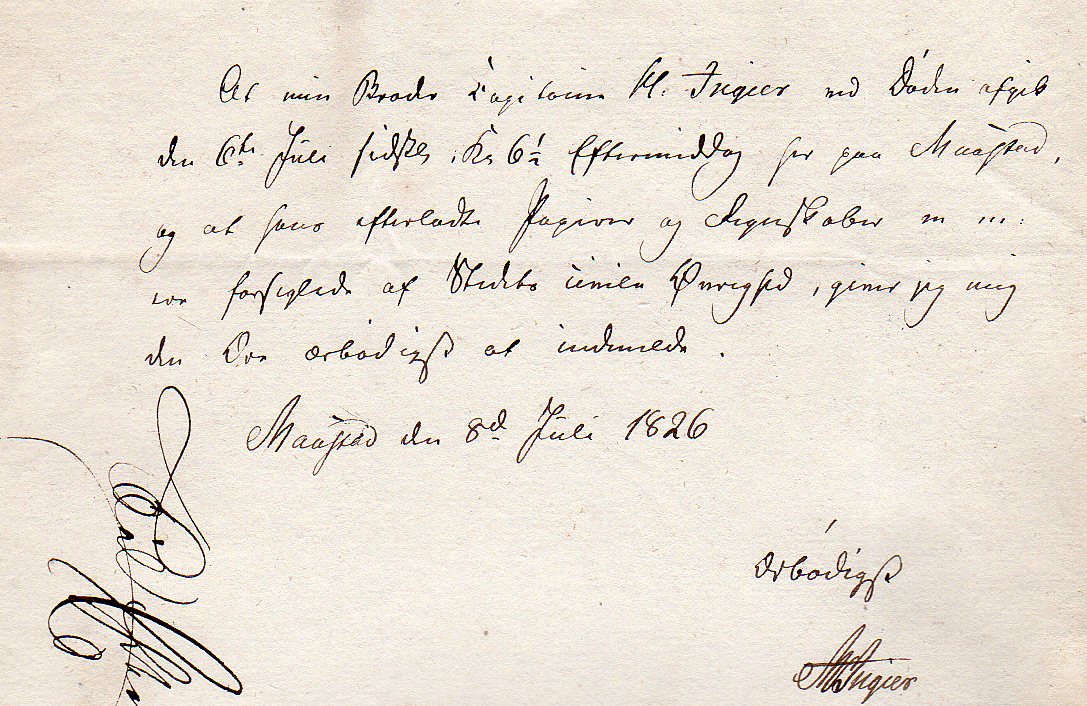 At min Broder Capitain H. Ingier ved Døden afgik
den 6te Juli sidstl. Kl 6½ Eftermiddag her paa Maastad,
og at hans efterladte Papirer og Regnskaber er ...
forseglede af Stedets civile Øvrighed, giver jeg mig
den Ære ærbødigst at indmelde.
Maastad den 8d Juli 1826
Ærbødigst
Ingier